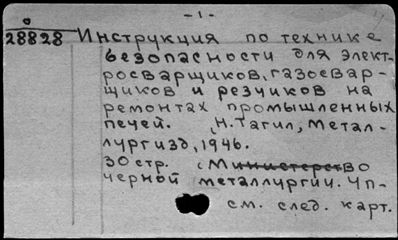 - 1 -
28828 Инструкция по технике
безопасности для элект-
росварщиков, газосвар-
щиков и резчиков на
ремонтах промышленных
печей. Н. Тагил, Метал-
лургизд, 1946.
30 стр. (Министерство
черной металлургии. Уп-
см. след. карт.